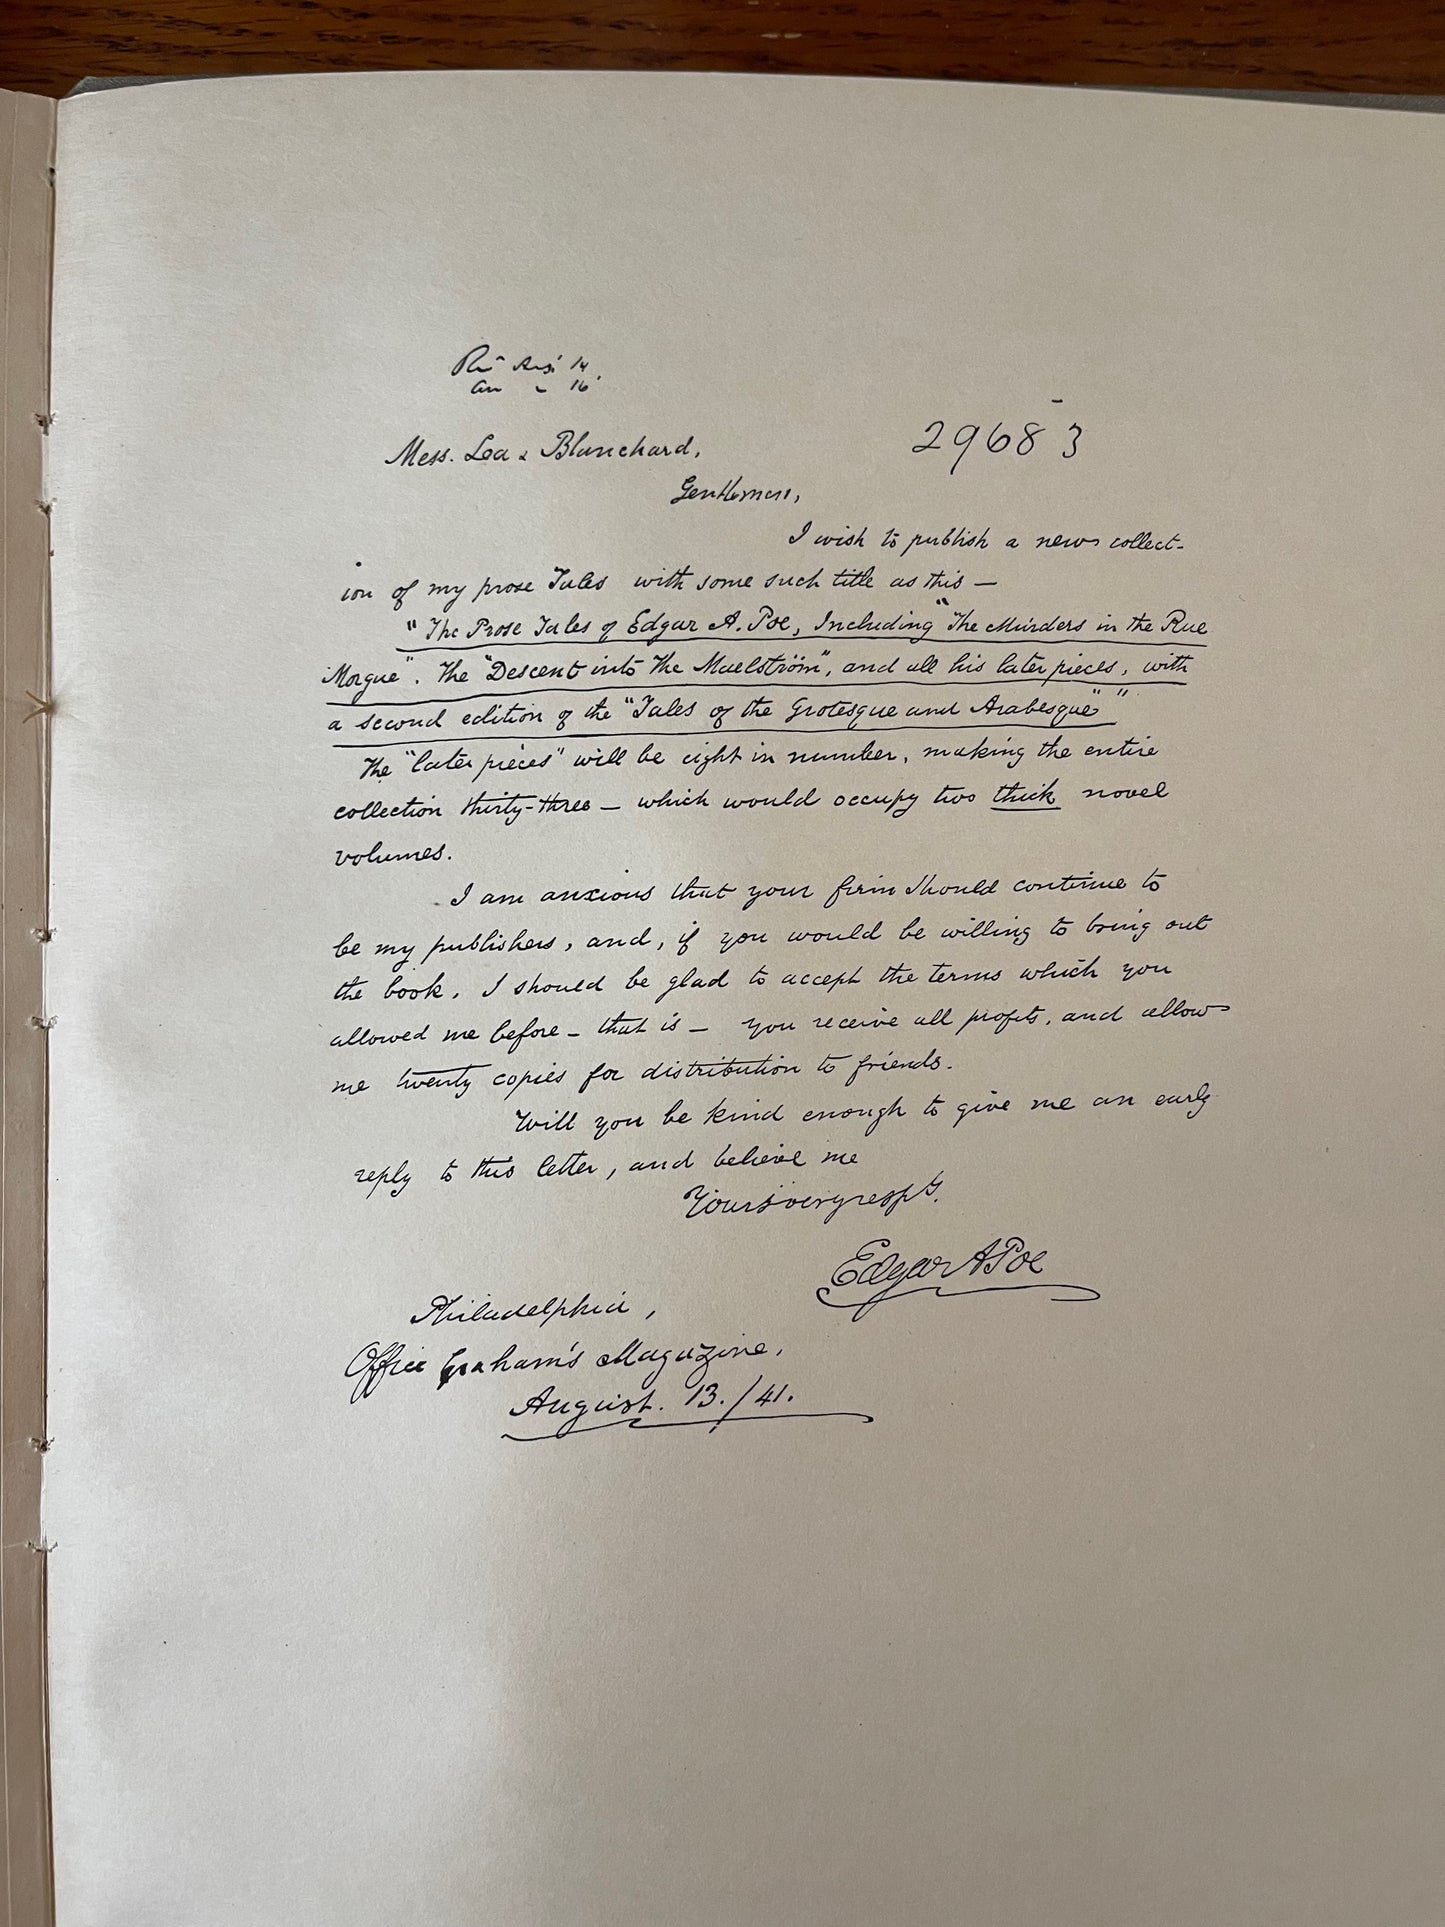 Aug' 14
" 16'
Mess. Lea & Blanchard,
29683
Gentlemen,
I wish to publish a new collect-
ion of my prose Tales with some such title as this —
"The Prose Tales of Edgar A. Poe, Including "The Murders in the Rue
Morgue", The "Descent into The Maelström", and all his later pieces, with
a second edition of the "Tales of the Grotesque and Arabesque" "
The "later pieces" will be eight in number, making the entire
collection thirty-three — which would occupy two thick novel
volumes.
I am anxious that your firm should continue to
be my publishers, and, if you would be willing to bring out
the book, I should be glad to accept the terms which you
allowed me before — that is — you receive all profits, and allow
me twenty copies for distribution to friends.
Will you be kind enough to give me an early
reply to this letter, and believe me
Yours very respy
Edgar A Poe
Philadelphia,
Office Graham's Magazine,
August. 13./41.